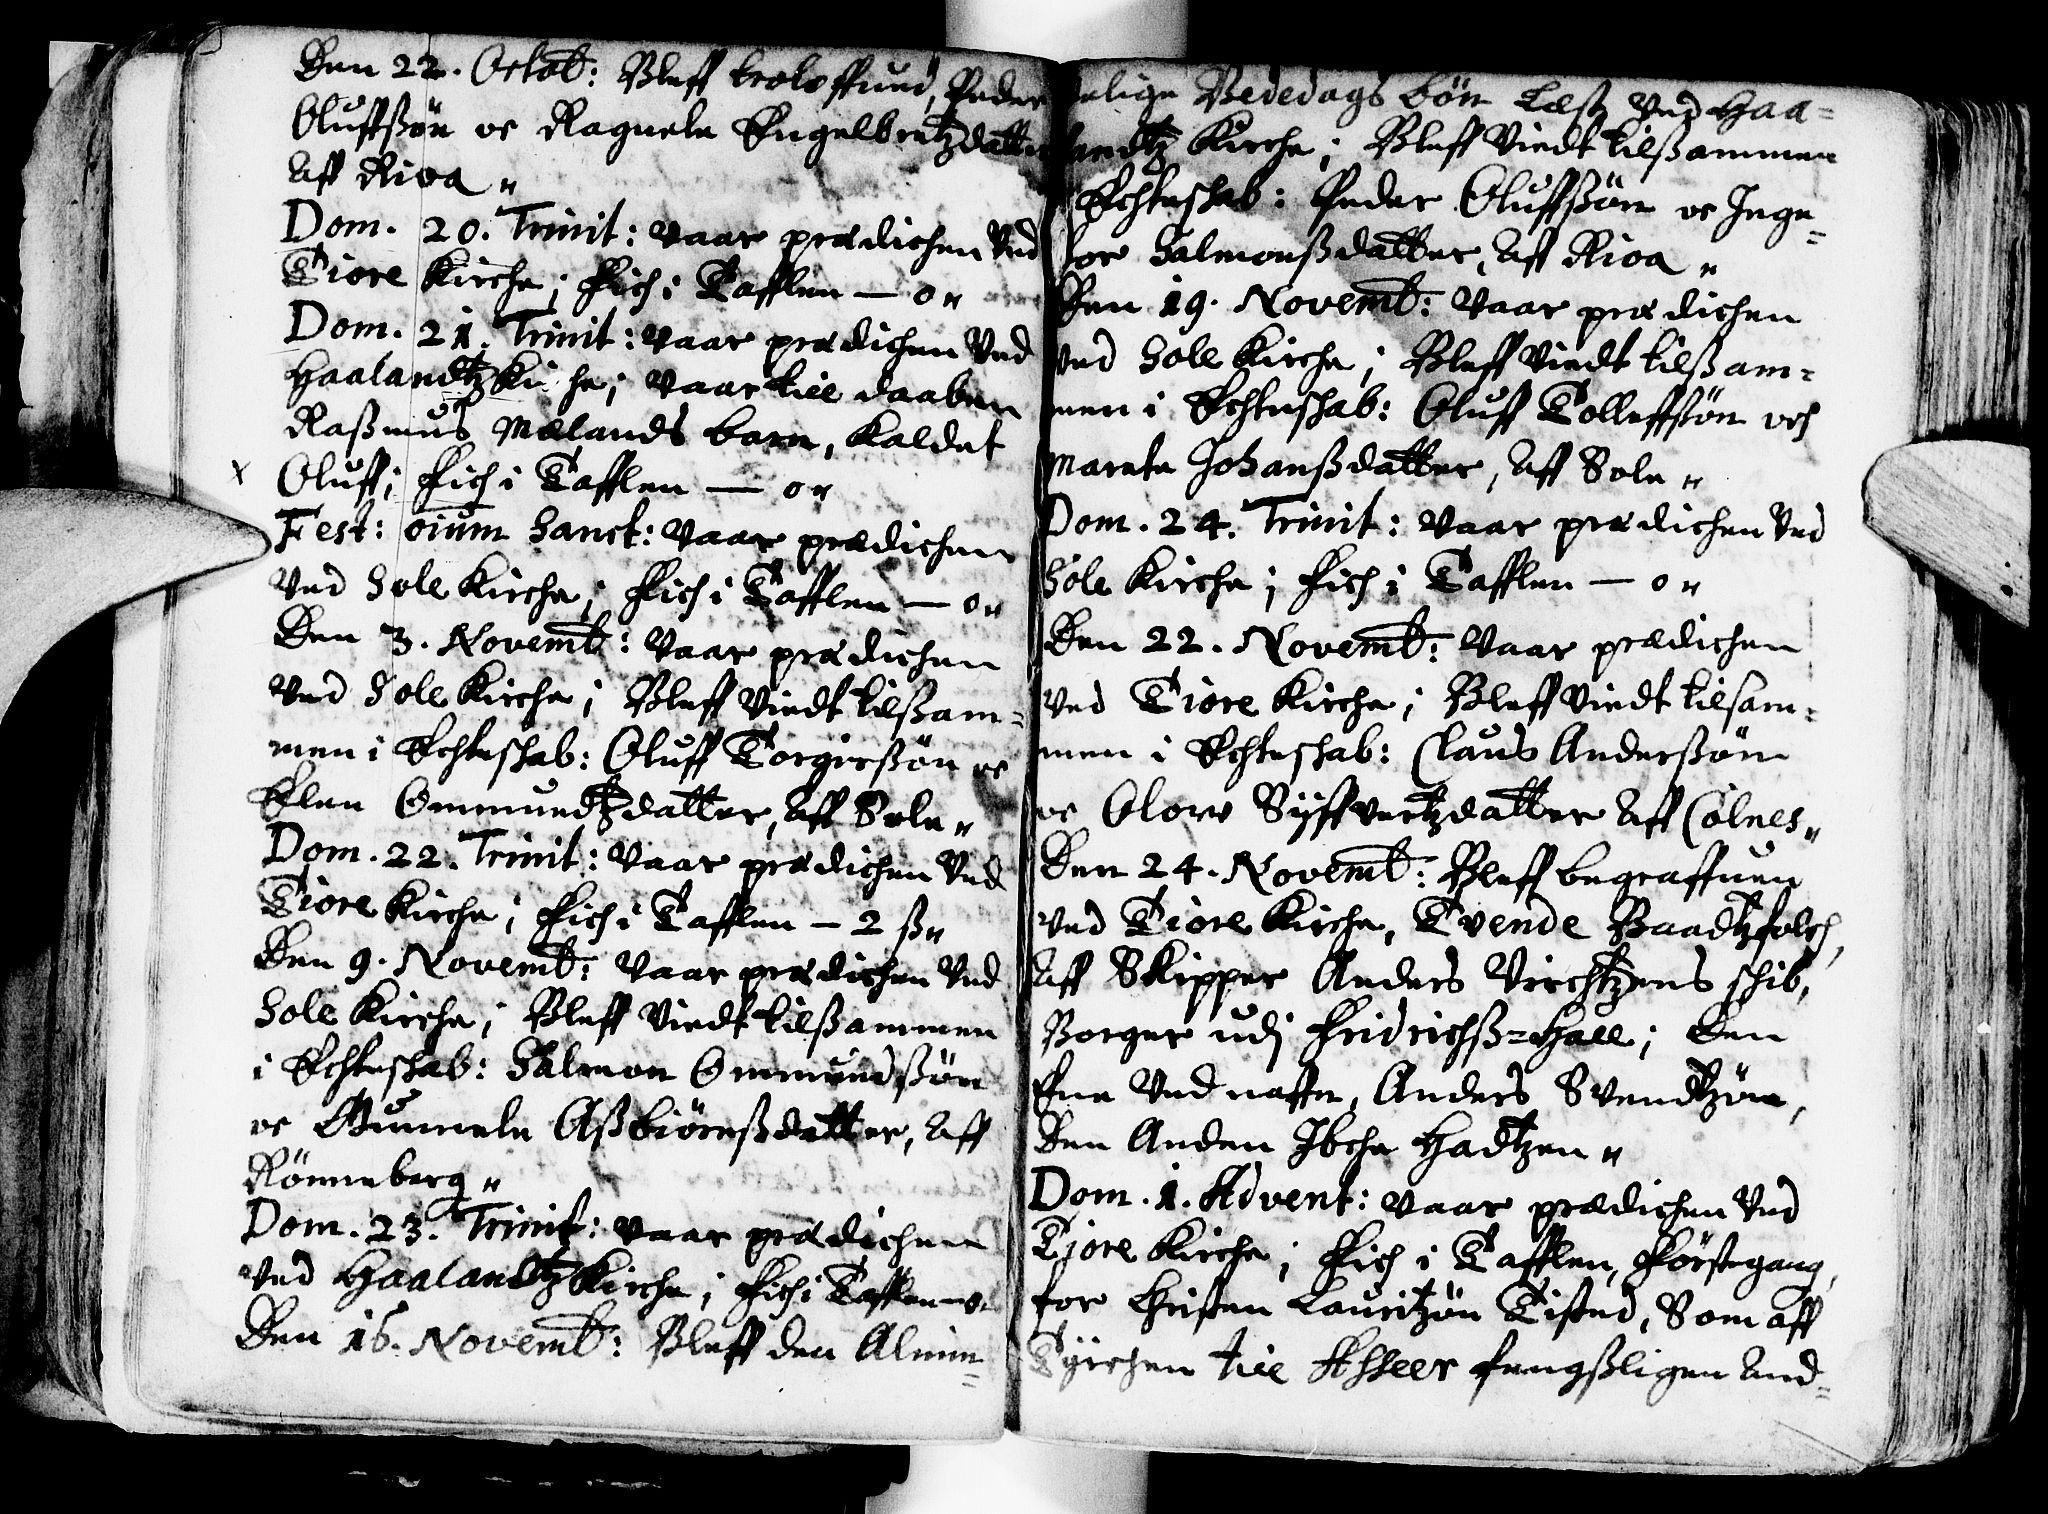 Den 22. Octob: Bleff troloffuid, Peder
Oluffßön oc Raguela Engelbretzdatter
Aff Rioa „
Dom. 20. Trinit: vaar prædichen Ved
Tiore Kirche; Fich i Tafflen — o „
Dom. 21. Trinit: vaar prædichen Ved
Haalandtz Kirche; vaar till daaben
Raßmus Mælands barn, kaldet
Oluff; Fich i Tafflen — o „
Fest: oium Sanct: vaar prædichen
Ved Sole Kirche; Fich i Tafflen — o „
Den 3. Novemb: vaar prædichen
Ved Sole Kirche; Bleff Viedt tilßam=
men i Echteschab: Oluff Torgirßön oc
Elen Ommundtzdatter, Aff Sole „
Dom. 22. Trinit: vaar prædichen Ved
Tiore Kirche; Fich i Tafflen — 2 ß „
Den 9. Novemb: vaar prædichen Ved
Sole Kirche; Bleff Viedt tilßammen
i Echteschab: Salmon Ommundßön
oc Gunnele Aßbiörnßdatter, Aff
Rönneberg „
Dom. 23. Trinit: vaar prædichen
Ved Haalandtz Kirche; Fich i Tafflen — o.
Den 16. Novemb: Bleff den Almin=
delige Bededags bön Læst Ved Haa=
landtz Kirche; Bleff Viedt tilßammen
i Echteschab: Peder Oluffßön oc Inge=
bor Salmonßdatter, Aff Rioa „
Den 19. Novemb: vaar prædichen
Ved Sole Kirche; Bleff Viedt tilßam=
men i Echteschab: Oluff Tolleffßön och
Marete Johanßdatter, Aff Sole „
Dom. 24. Trinit: vaar prædichen Ved
Sole Kirche; Fich i Tafflen — o „
Den 22. Novemb: vaar prædichen
Ved Tiore Kirche; Bleff Viedt tilsam=
men i Echteschab: Claus Anderßön
oc Olow Syffvertzdatter Aff Cölnes „
Den 24. Novemb: Bleff begraffuen
Ved Tiore Kirche, Tvende Baadtzfolch,
Aff Skipper Anders Virchtzens schib,
Borger udj Fridrichß=Hall; Den
Ene Ved naffn, Anders Svendtzön,
Den Anden Ibche Hadtzen „
Dom. 1. Advent: vaar prædichen Ved
Tjore Kirche; Fich i Tafflen, Förstegang,
for Christen Lauritzön Tisted, Som aff
Tyrchen till Asseer fengßligen And=